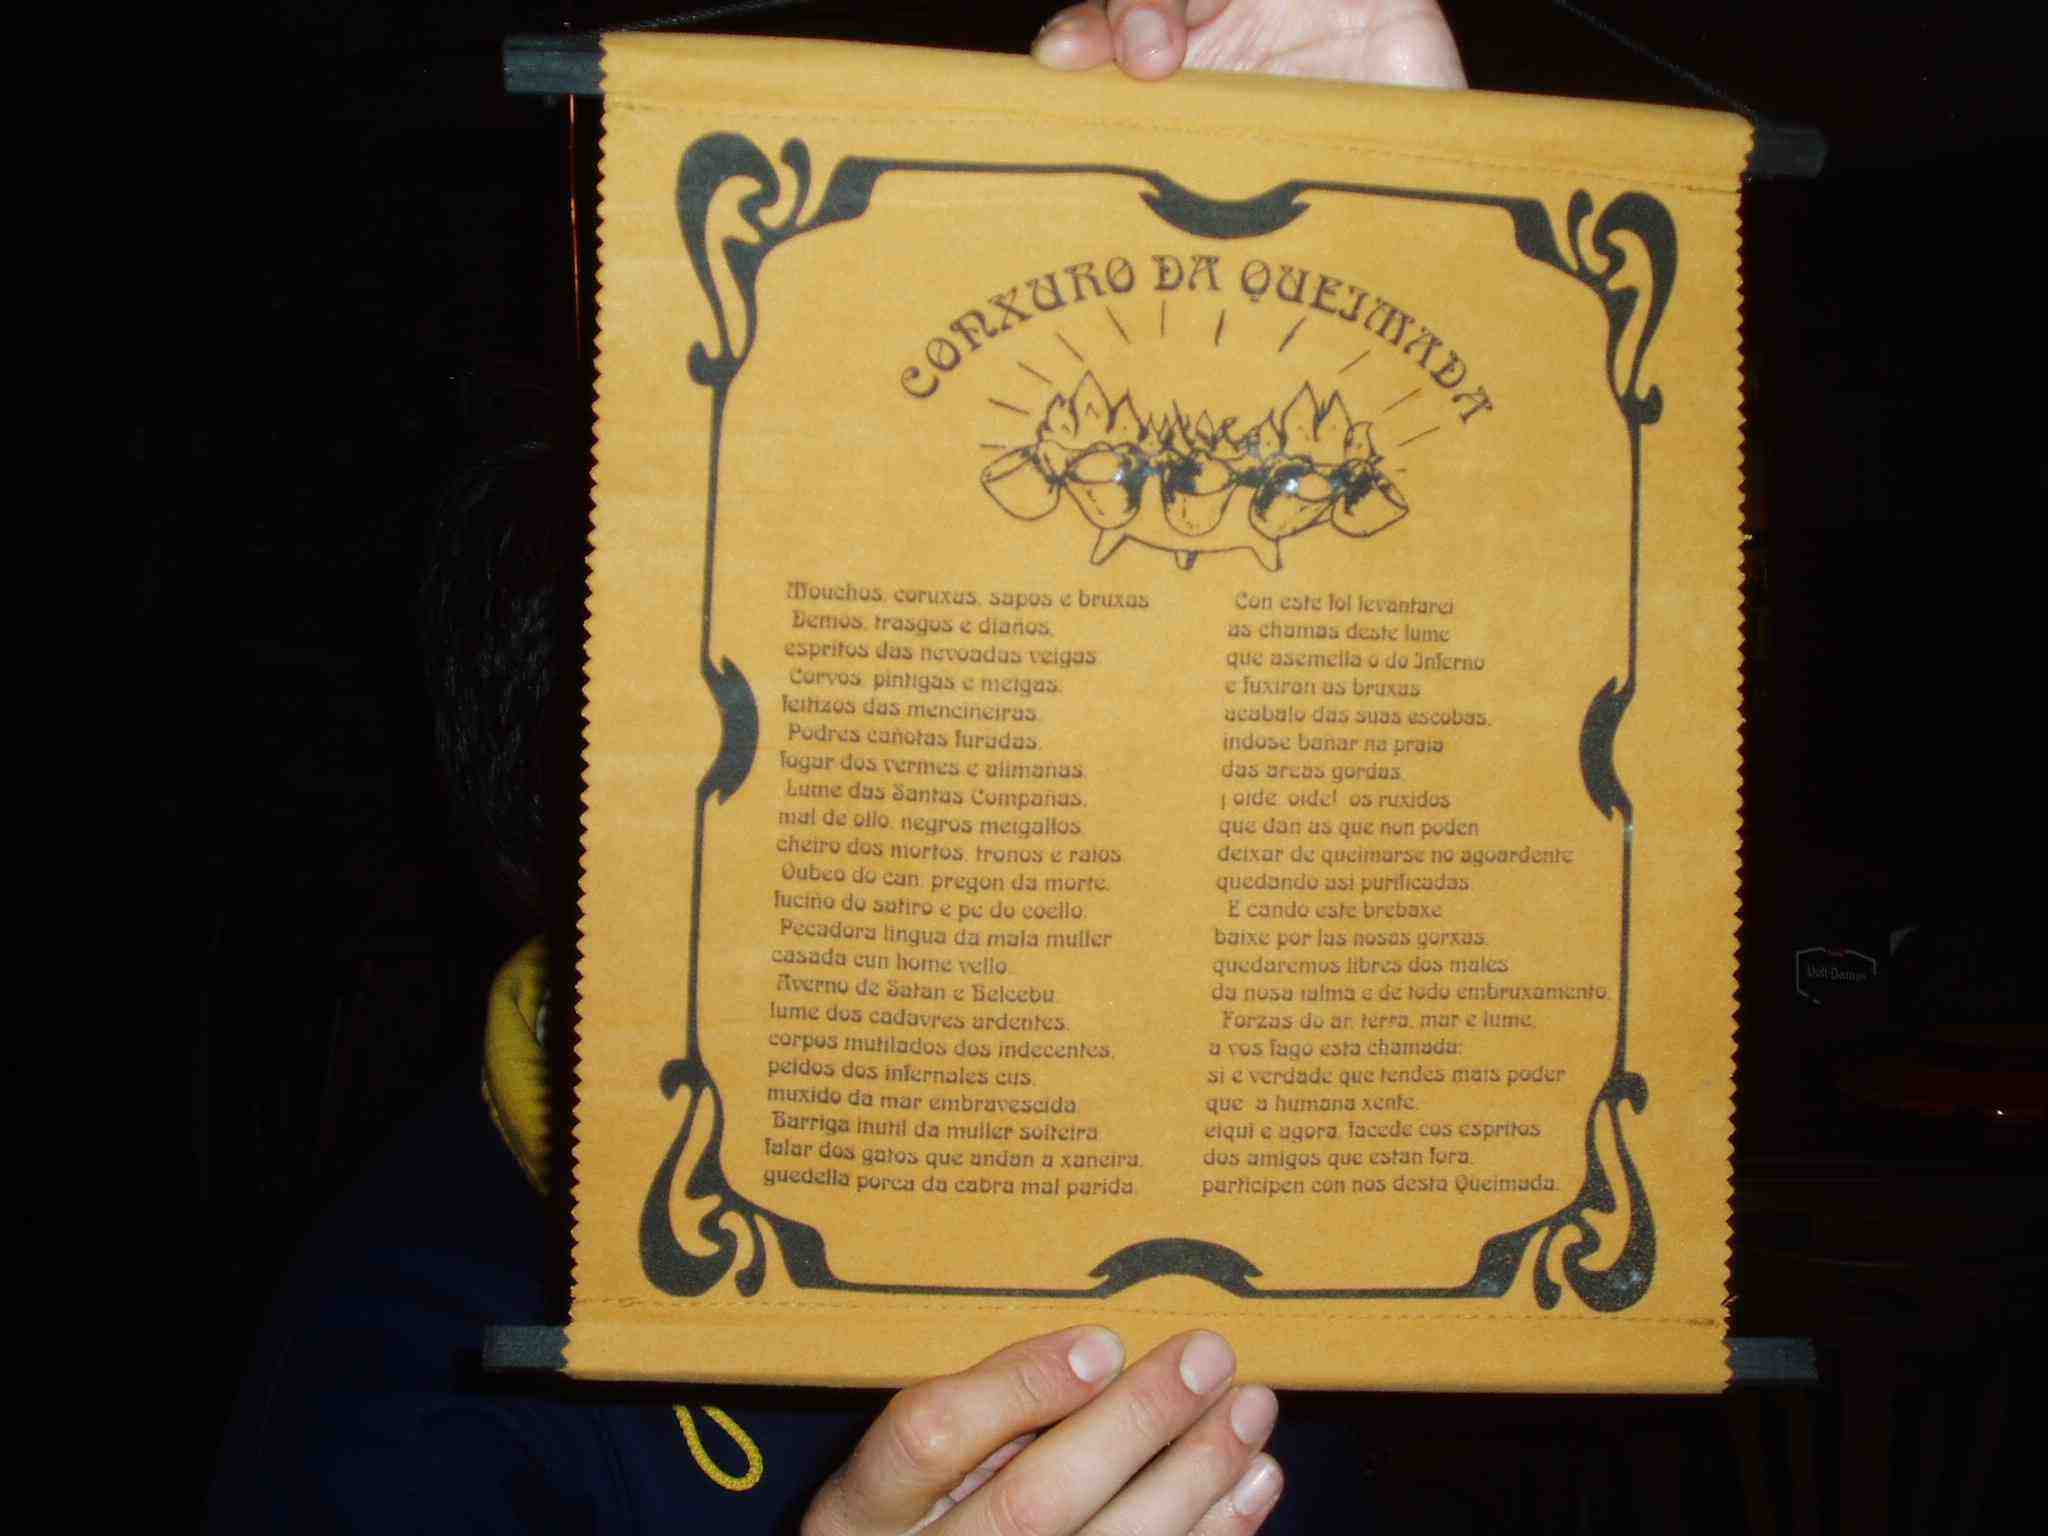 CONXURO DA QUEIMADA
Mouchos, coruxas, sapos e bruxas
Demos, trasgos e diaños,
espritos das nevoadas veigas.
Corvos, pintigas e meigas,
feitizos das menciñeiras.
Podres cañotas furadas,
fogar dos vermes e alimañas.
Lume das Santas Compañas,
mal de ollo, negros meigallos,
cheiro dos mortos, tronos e raios.
Oubeo do can, pregon da morte,
fuciño do satiro e pe do coello.
Pecadora lingua da mala muller
casada cun home vello.
Averno de Satan e Belcebu,
lume dos cadavres ardentes,
corpos mutilados dos indecentes,
peidos dos infernales cus,
muxido da mar embravescida.
Barriga inutil da muller solteira
falar dos gatos que andan a xaneira,
guedella porca da cabra mal parida.
Con este fol levantarei
as chamas deste lume
que asemella o do Inferno
e fuxiran as bruxas
acabalo das suas escobas,
indose bañar na praia
das areas gordas.
¡ oide, oide! os ruxidos
que dan as que non poden
deixar de queimarse no agoardente
quedando asi purificadas.
E cando este brebaxe
baixe por las nosas gorxas,
quedaremos libres dos males
da nosa ialma e de todo embruxamento.
Forzas do ar, terra, mar e lume,
a vos fago esta chamada:
si e verdade que tendes mais poder
que a humana xente,
eiqui e agora, facede cos espritos
dos amigos que estan fora,
participen con nos desta Queimada.
Voll-Damm